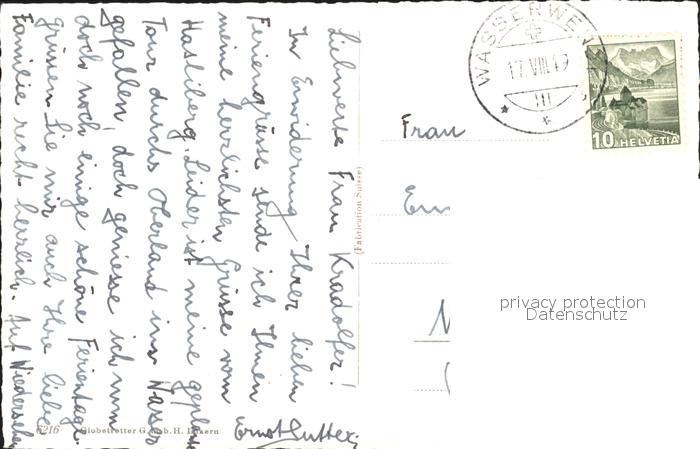 Liebwerte Frau Kradolfer!
In Erwiderung Ihrer lieben
Feriengrüsse sende ich Ihnen
meine herzlichsten Grüsse vom
Hasliberg. Leider ist meine geplante
Tour durchs Oberland ins Wasser
gefallen, doch geniesse ich nun
doch noch einige schöne Ferientage.
Grüssen Sie mir auch Ihre liebe
Familie recht herzlich. Auf Wiedersehen
Ernst Sutter.
6216 Globetrotter G.m.b.H. Luzern
(Fabrication Suisse)
WASSERWEN
17.VIII.49
10 HELVETIA
Frau
privacy protection
Datenschutz